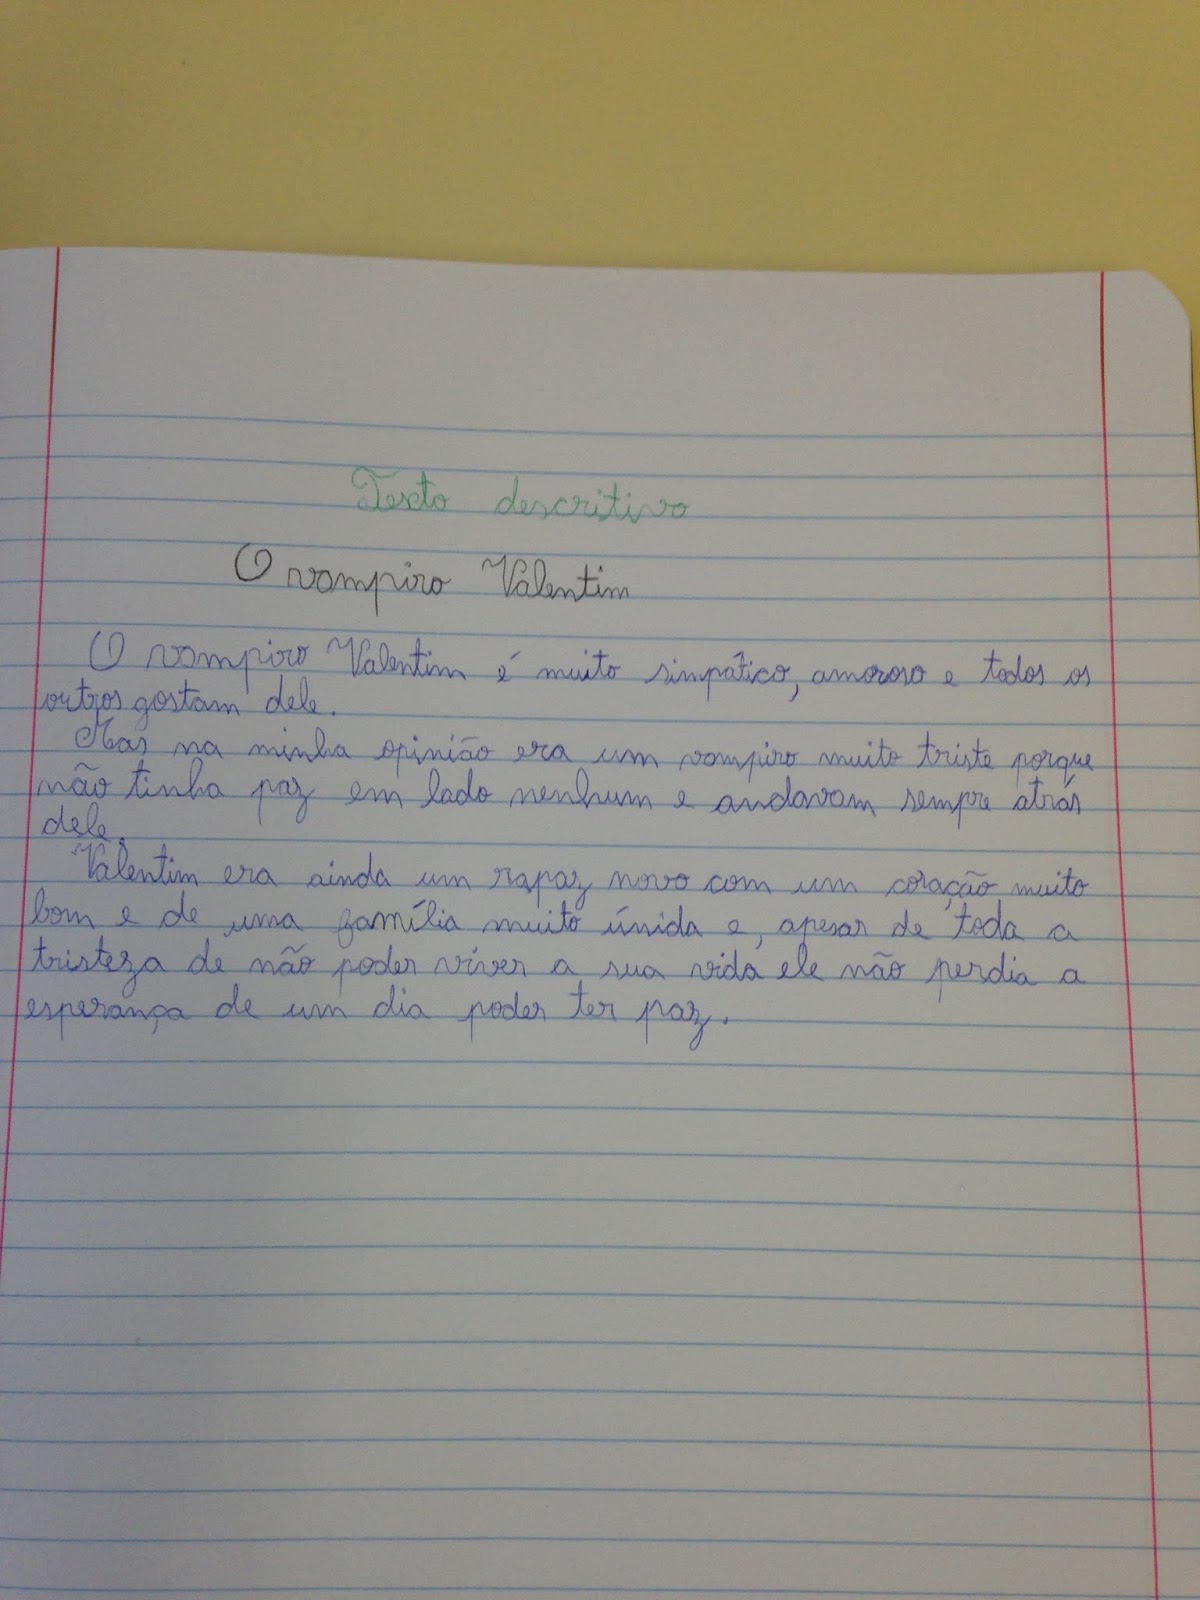 Texto descritivo
O vampiro Valentim
O vampiro Valentim é muito simpático, amoroso e todos os
outros gostam dele.
Mas na minha opinião era um vampiro muito triste porque
não tinha paz em lado nenhum e andavam sempre atrás
dele.
Valentim era ainda um rapaz novo com um coração muito
bom e de uma família muito únida e, apesar de toda a
tristeza de não poder viver a sua vida ele não perdia a
esperança de um dia poder ter paz.